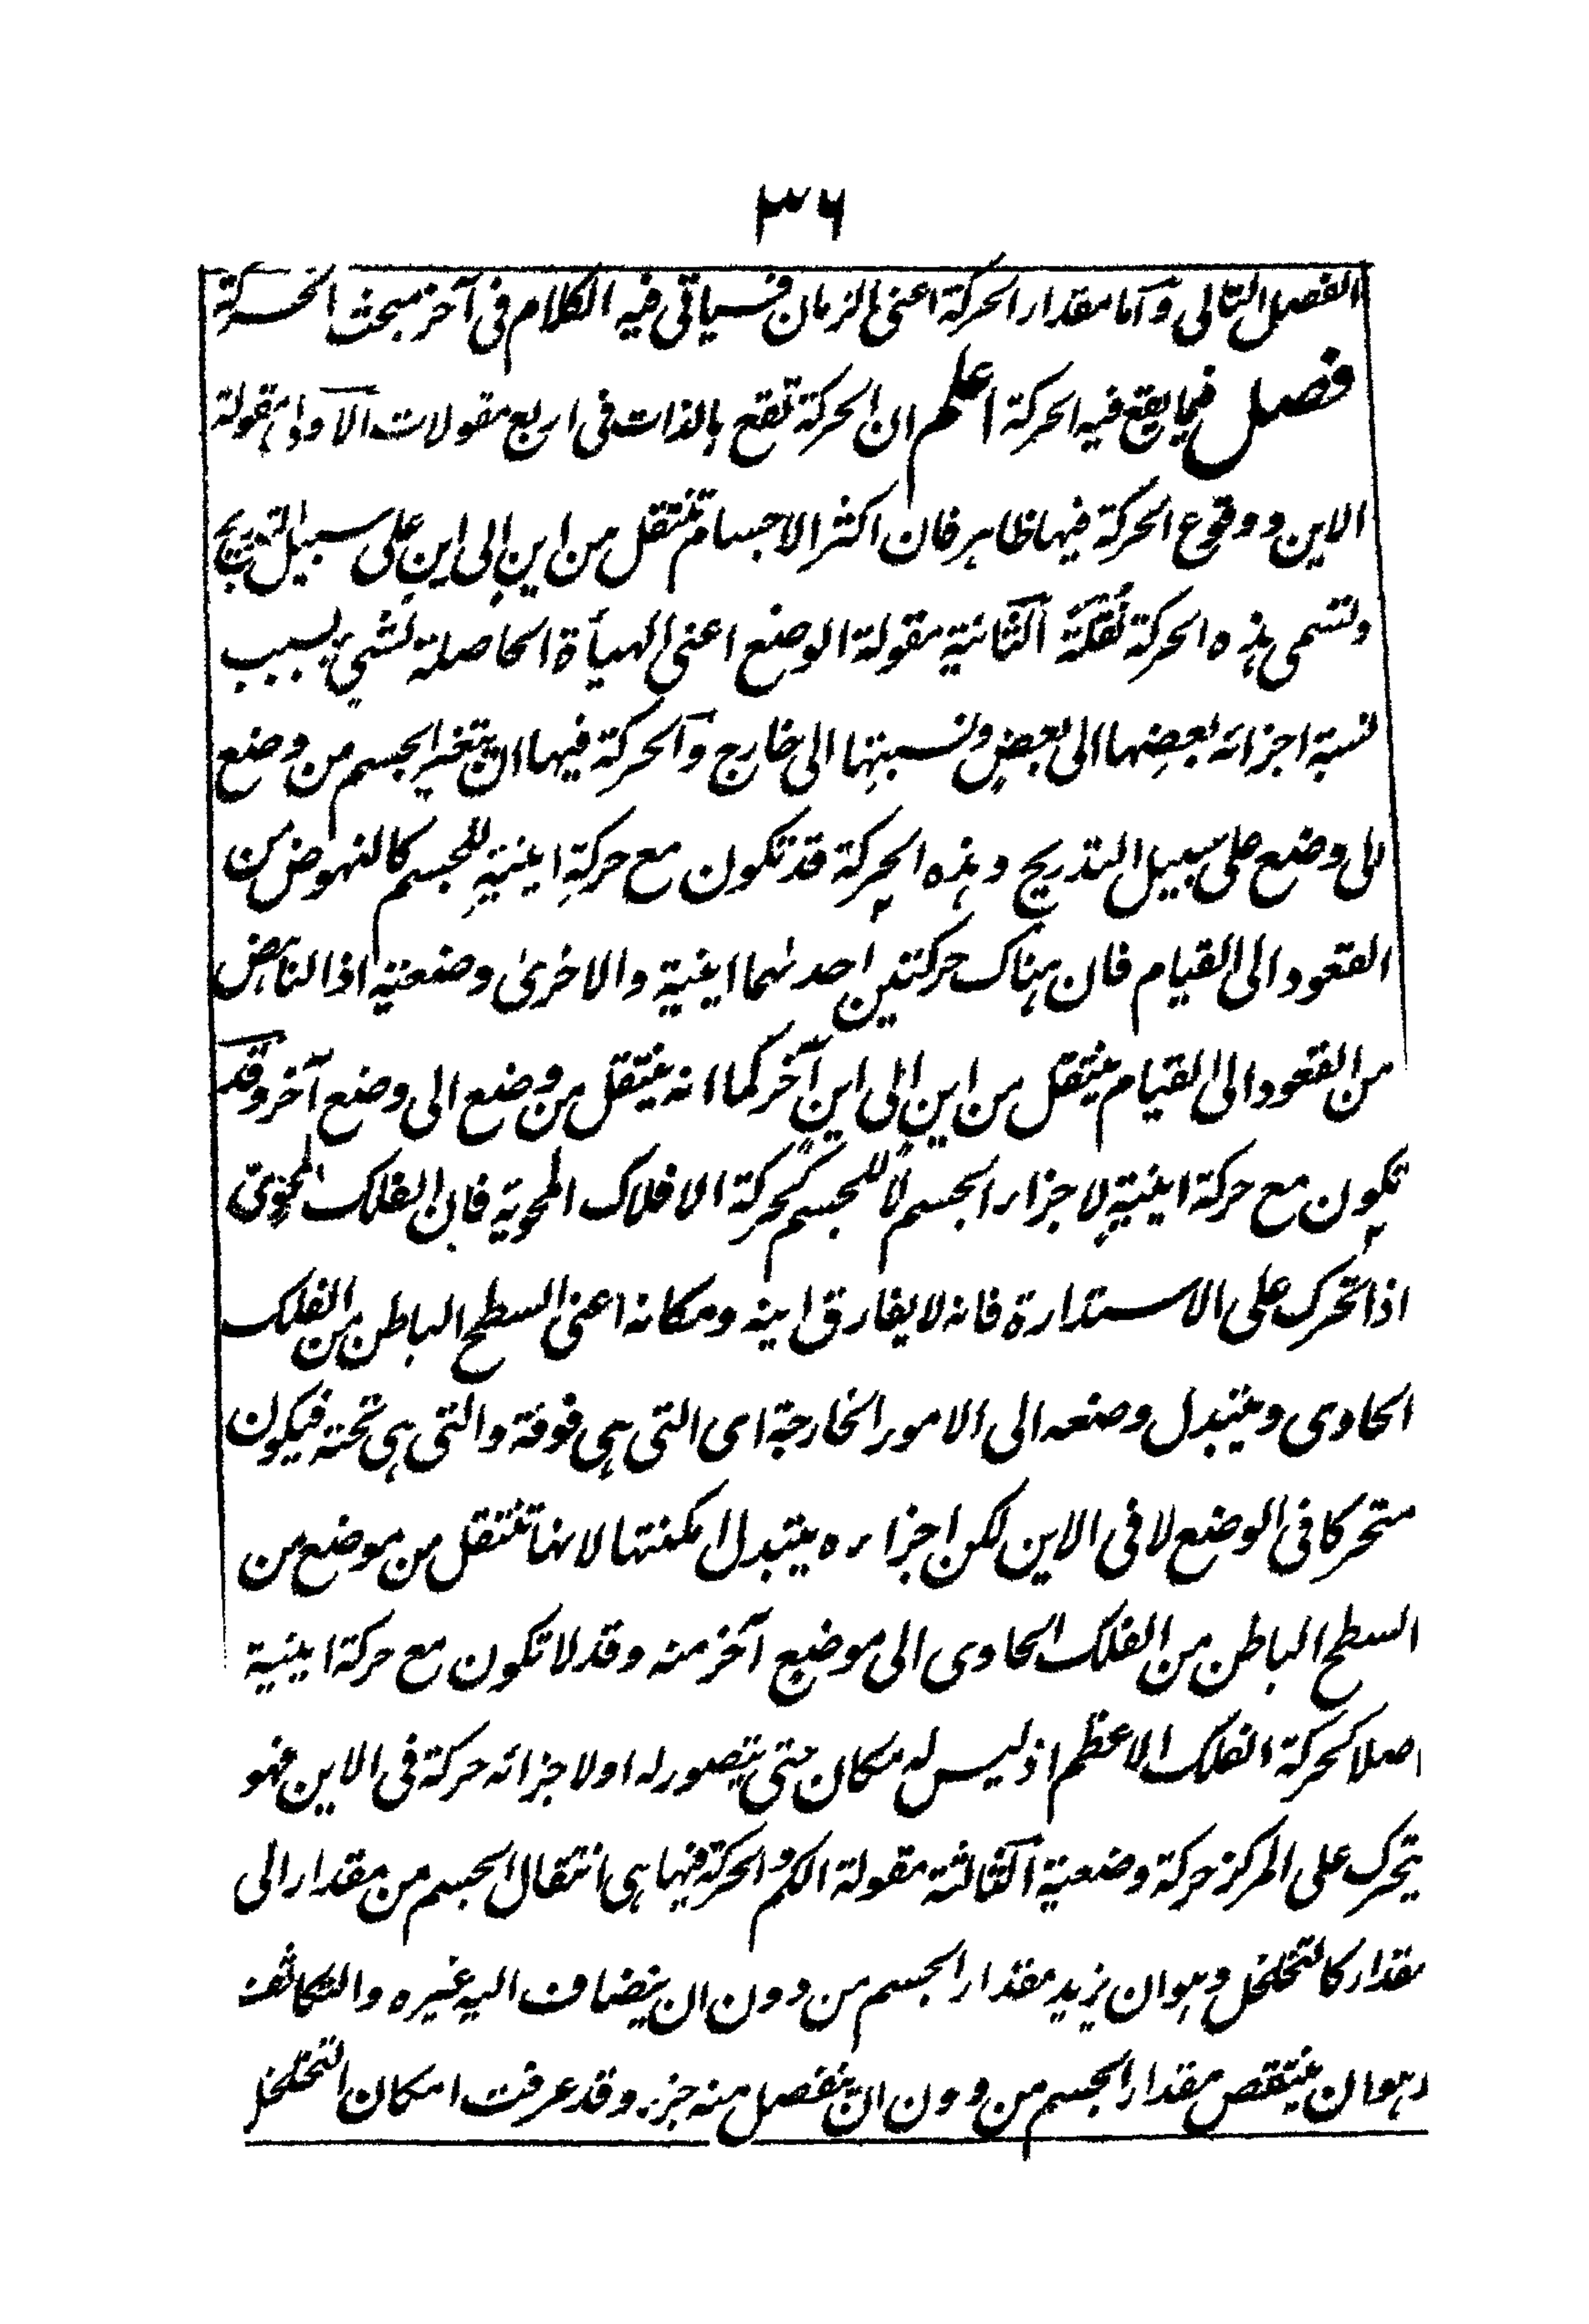 ٣٦
الفصل التالى وآما مقدار الحركة اعنى الزمان فسياتى فيه الكلام فى آخر مبحث الحركة
فصل فيما يقع فيه الحركة اعلم ان الحركة تقع بالذات فى اربع مقولات الآولى مقولة
الاين ووقوع الحركة فيها ظاهر فان اكثر الاجسام تنتقل من اين الى اين على سبيل التدريج
وتسمى هذه الحركة نُقلَة الثانية مقولة الوضع اعنى الهيأة الحاصلة لشيئ بسبب
نسبة اجزائه بعضِها الى بعضٍ ونسبتِها الى خارج وآلحركة فيها ان يتغير الجسم من وضع
الى وضع على سبيل التدريج وهذه الحركة قد تكون مع حركةِ اينيةٍ للجسم كالنهوض من
القعود الى القيام فان هناك حركتين احدٰهما اينية والاخرىٰ وضعية اذا الناهض
من القعود الى القيام ينتقل من اين الى اينٍ آخر كما انه ينتقل من وضع الى وضع آخر وقد
تكون مع حركة اينيةٍ لاجزاء الجسم لا للجسم كحركة الافلاك المحوية فان الفلك المحوىّ
اذا تحرك على الاستدارة فانه لا يفارق اينه ومكانه اعنى السطح الباطن من الفلك
الحاوى ويتبدل وضعه الى الامور الخارجة اى التى هى فوقه والتى هى تحته فيكون
متحركا فى الوضع لا فى الاين لكن اجزاءه يتبدل امكنتها لانها تنتقل من موضع من
السطح الباطن من الفلك الحاوى الى موضع آخر منه وقد لا تكون مع حركة اينية
اصلا كحركة الفلك الاعظم اذ ليس له مكان حتى يتصور له او لاجزائه حركة فى الاين فهو
يتحرك على المركز حركة وضعية الثالثة مقولة الكم والحركة فيها هى انتقال الجسم من مقدار الى
مقدار كالتخلخل وهو ان يزيد مقدار الجسم من دون ان ينضاف اليه غيره والتكاثف
وهو ان ينتقص مقدار الجسم من دون ان ينفصل منه جزء وقد عرفت امكان التخلخل